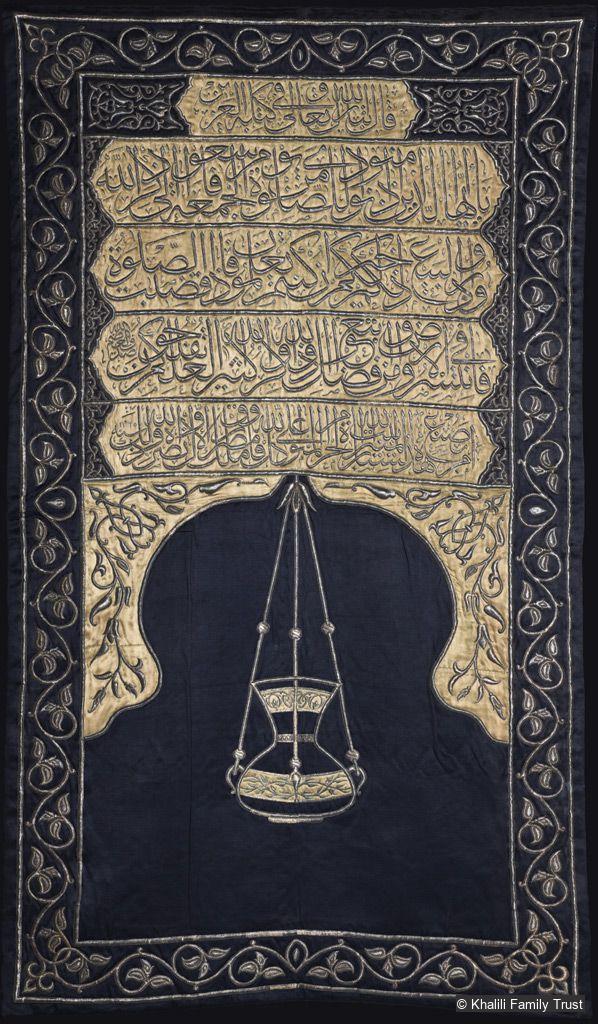 قال الله تبارك وتعالى في كتابه العزيز
يا ايها الذين امنوا اذا نودي للصلوة من يوم الجمعة فاسعوا الى ذكر الله
وذروا البيع ذلكم خير لكم ان كنتم تعلمون فاذا قضيت الصلوة
فانتشروا في الارض وابتغوا من فضل الله واذكروا الله كثيرا لعلكم تفلحون
هذه الستارة
© Khalili Family Trust